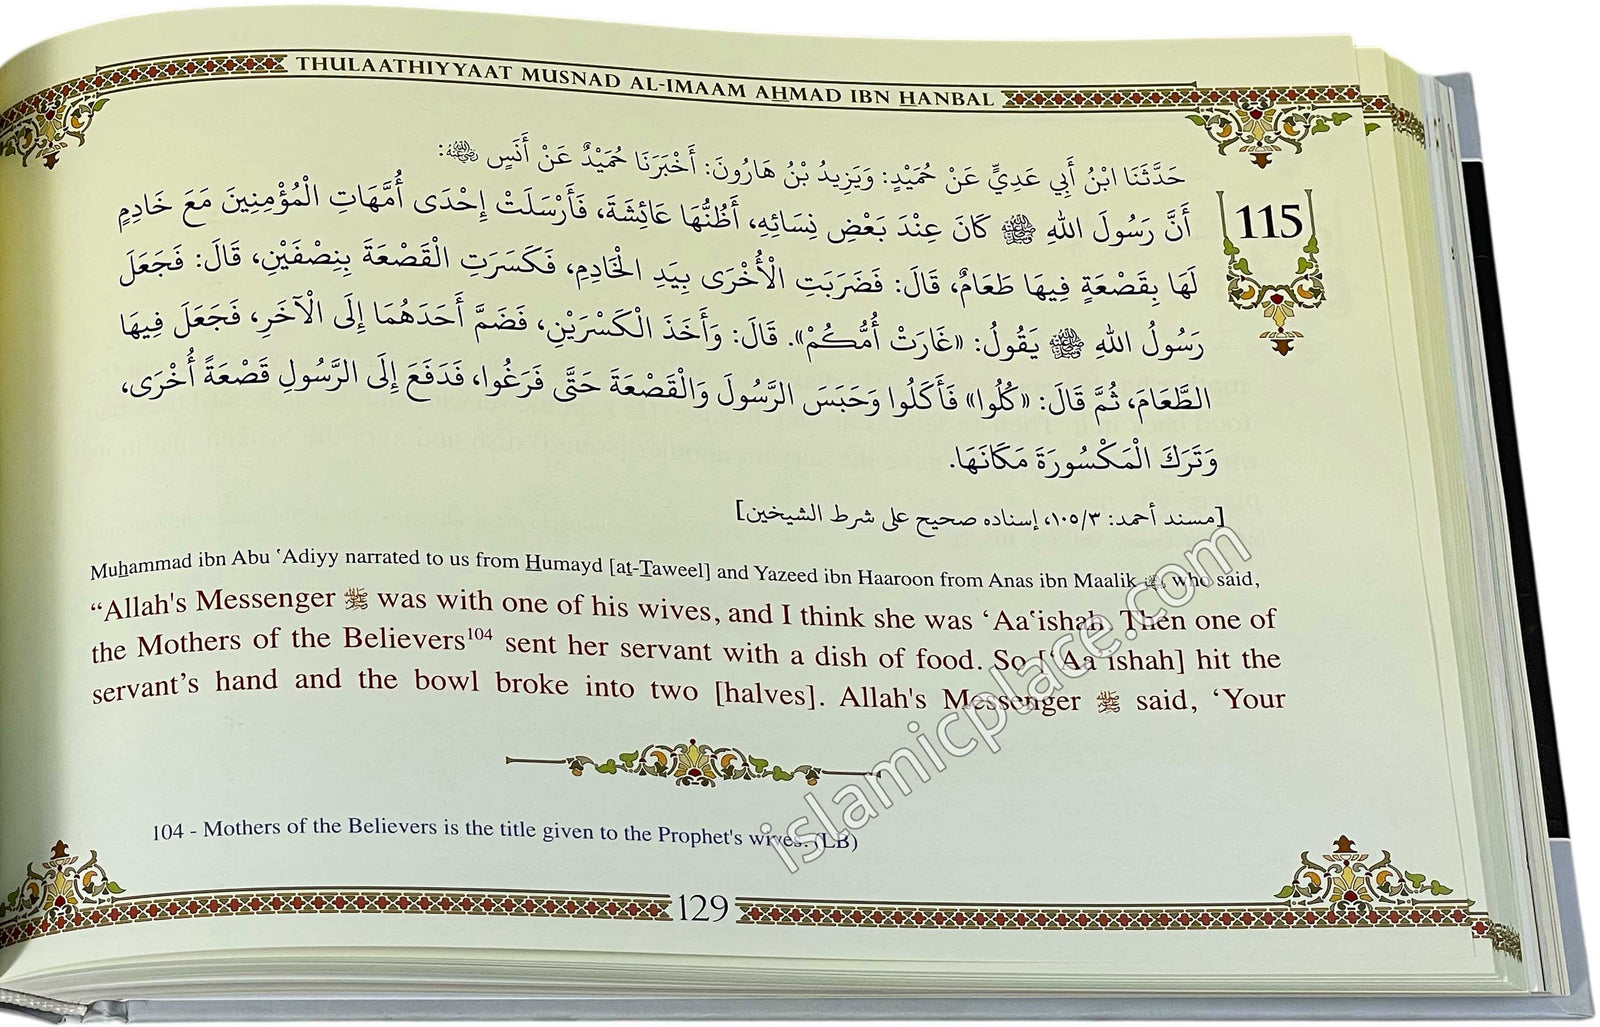 THULAATHIYYAAT MUSNAD AL-IMAAM AHMAD IBN HANBAL
115
حَدَّثَنَا ابْنُ أَبِي عَدِيٍّ عَنْ حُمَيْدٍ: وَيَزِيدُ بْنُ هَارُونَ: أَخْبَرَنَا حُمَيْدٌ عَنْ أَنَسٍ رضي الله عنه:
أَنَّ رَسُولَ اللهِ ﷺ كَانَ عِنْدَ بَعْضِ نِسَائِهِ، أَظُنُّهَا عَائِشَةَ، فَأَرْسَلَتْ إِحْدَى أُمَّهَاتِ الْمُؤْمِنِينَ مَعَ خَادِمٍ
لَهَا بِقَصْعَةٍ فِيهَا طَعَامٌ، قَالَ: فَضَرَبَتِ الْأُخْرَى بِيَدِ الْخَادِمِ، فَكَسَرَتِ الْقَصْعَةَ بِنِصْفَيْنِ، قَالَ: فَجَعَلَ
رَسُولُ اللهِ ﷺ يَقُولُ: «غَارَتْ أُمُّكُمْ». قَالَ: وَأَخَذَ الْكَسْرَيْنِ، فَضَمَّ أَحَدَهُمَا إِلَى الْآخَرِ، فَجَعَلَ فِيهَا
الطَّعَامَ، ثُمَّ قَالَ: «كُلُوا» فَأَكَلُوا وَحَبَسَ الرَّسُولَ وَالْقَصْعَةَ حَتَّى فَرَغُوا، فَدَفَعَ إِلَى الرَّسُولِ قَصْعَةً أُخْرَى،
وَتَرَكَ الْمَكْسُورَةَ مَكَانَهَا.
[مسند أحمد: ١٠٥/٣، إسناده صحيح على شرط الشيخين]
Muhammad ibn Abu ‘Adiyy narrated to us from Humayd [at-Taweel] and Yazeed ibn Haaroon from Anas ibn Maalik رضي الله عنه who said,
“Allah's Messenger ﷺ was with one of his wives, and I think she was ‘Aa‘ishah. Then one of
the Mothers of the Believers104 sent her servant with a dish of food. So [‘Aa‘ishah] hit the
servant’s hand and the bowl broke into two [halves]. Allah's Messenger ﷺ said, ‘Your
104 - Mothers of the Believers is the title given to the Prophet's wives. (LB)
129
islamicplace.com